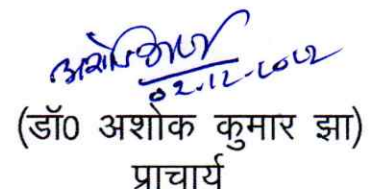 02.12.2012
(डॉ0 अशोक कुमार झा)
प्राचार्य